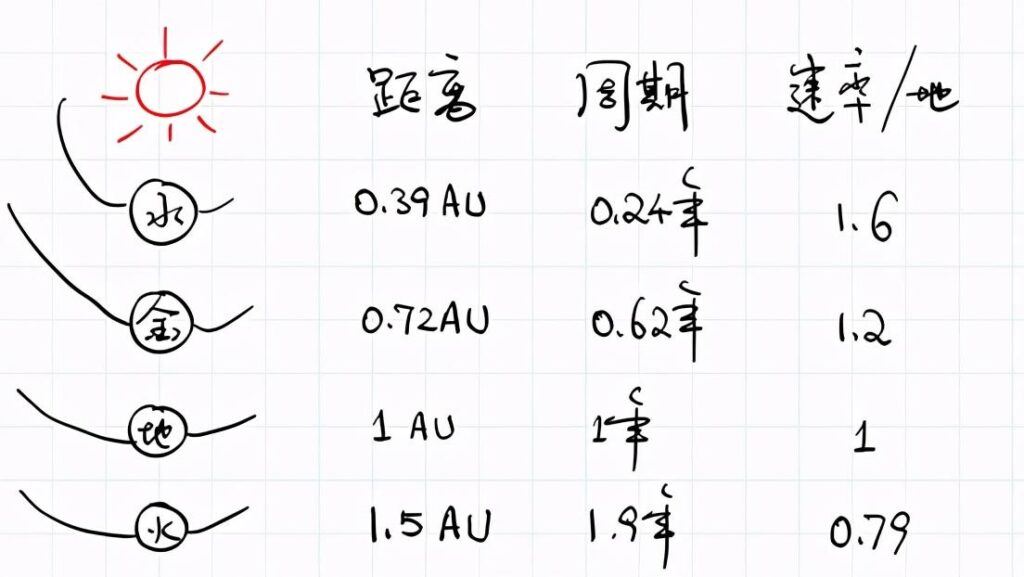 距离 周期 速率/地
水 0.39AU 0.24年 1.6
金 0.72AU 0.62年 1.2
地 1AU 1年 1
火 1.5AU 1.9年 0.79